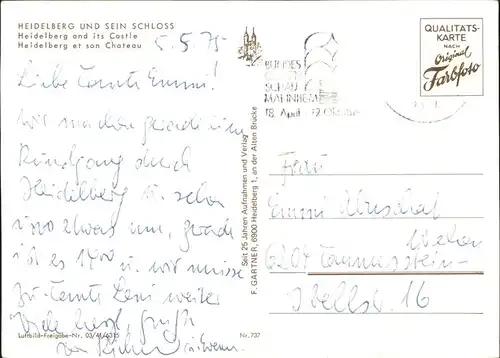 HEIDELBERG UND SEIN SCHLOSS
Heidelberg and its Castle
Heidelberg et son Chateau
5.5.75
Liebe Tante Emmi!
Wir machen gerade einen
Rundgang durch
Heidelberg u. sehen
uns etwas um, gerade
ist es 1400 u. wir müssen
zu Tante Leni weiter
Viele herzl. Grüße
von
Luftbild-Freigabe-Nr. 03/41/6315
Nr. 737
Seit 25 Jahren Aufnahmen und Verlag
F. GÄRTNER, 6900 Heidelberg 1, an der Alten Brücke
BUNDES
GARTEN
SCHAU
MANNHEIM
18. April
QUALITÄTS-
KARTE
NACH
Original
Farbfoto
Frau
Emmi
6204 Taunusstein-
16